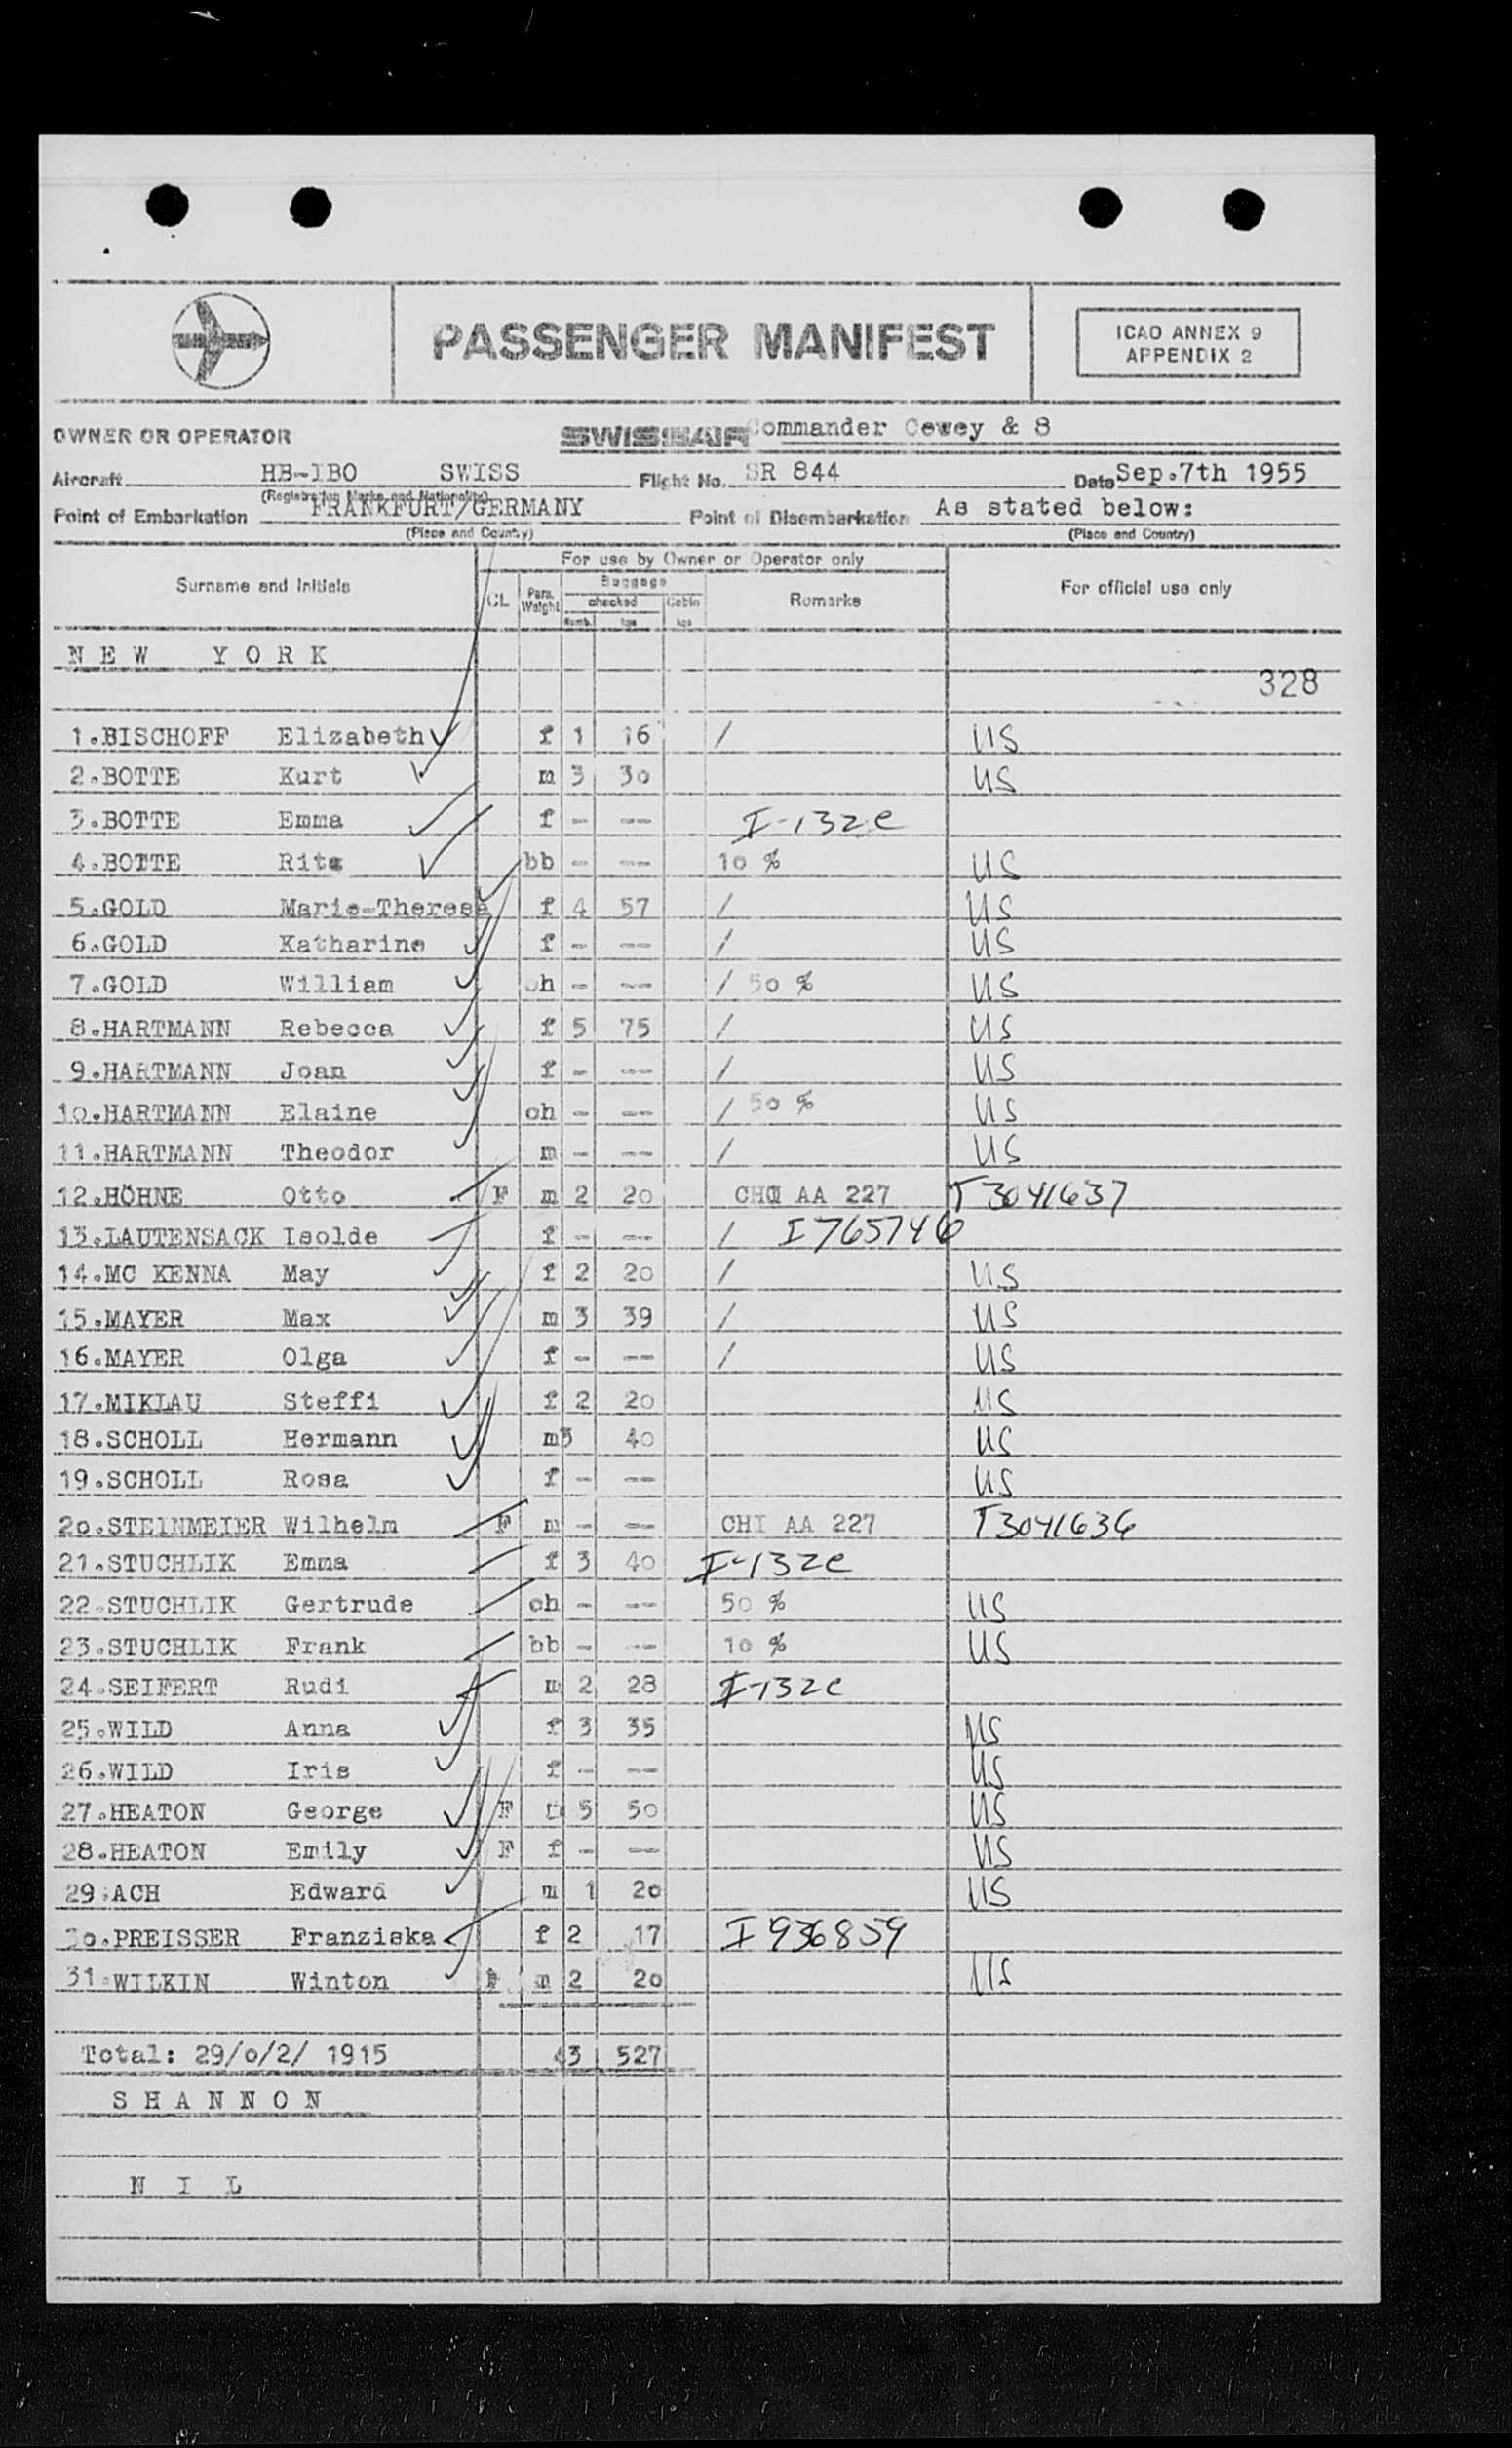 PASSENGER MANIFEST
ICAO ANNEX 9
APPENDIX 2
OWNER OR OPERATOR SWISSAIR Commander Cewey & 8
Aircraft HB-IBO SWISS Flight No. SR 844 Date Sep.7th 1955
(Registration Marks and Nationality)
Point of Embarkation FRANKFURT/GERMANY Point of Disembarkation As stated below:
(Place and Country) (Place and Country)
For use by Owner or Operator only
Surname and Initials CL Pass. Weight Baggage checked Numb. kgs Cabin kgs Remarks For official use only
N E W Y O R K
328
1.BISCHOFF Elizabeth f 1 16 / US
2.BOTTE Kurt m 3 30 US
3.BOTTE Emma f - -- I-132e
4.BOTTE Rita bb - -- 10 % US
5.GOLD Marie-Theresa f 4 57 / US
6.GOLD Katharine f - -- / US
7.GOLD William ch - -- / 50 % US
8.HARTMANN Rebecca f 5 75 / US
9.HARTMANN Joan f - -- / US
10.HARTMANN Elaine ch - -- / 50 % US
11.HARTMANN Theodor m - -- / US
12.HÖHNE Otto F m 2 20 CHI AA 227 T3041637
13.LAUTENSACK Isolde f - -- / I765746
14.MC KENNA May f 2 20 / US
15.MAYER Max m 3 39 / US
16.MAYER Olga f - -- / US
17.MIKLAU Steffi f 2 20 US
18.SCHOLL Hermann m3 40 US
19.SCHOLL Rosa f - -- US
20.STEINMEIER Wilhelm F m - -- CHI AA 227 T3041636
21.STUCHLIK Emma f 3 40 I-132e
22.STUCHLIK Gertrude ch - -- 50 % US
23.STUCHLIK Frank bb - -- 10 % US
24.SEIFERT Rudi m 2 28 I-132e
25.WILD Anna f 3 35 US
26.WILD Iris f - -- US
27.HEATON George F m 5 50 US
28.HEATON Emily F f - -- US
29.ACH Edward m 1 20 US
30.PREISSER Franziska f 2 17 I936859
31.WILKIN Winton F m 2 20 US
Total: 29/0/2/ 1915 43 527
S H A N N O N
N I L